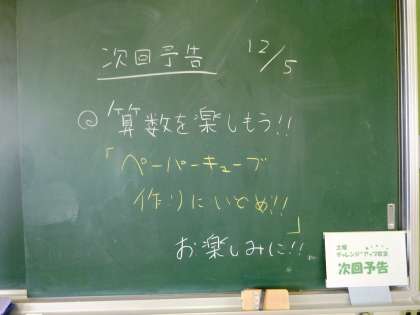 次回予告 12/5
◎算数を楽しもう!!
「ペーパーキューブ
作りにいどめ!!」
お楽しみに!!
土曜
チャレンジアップ教室
次回予告